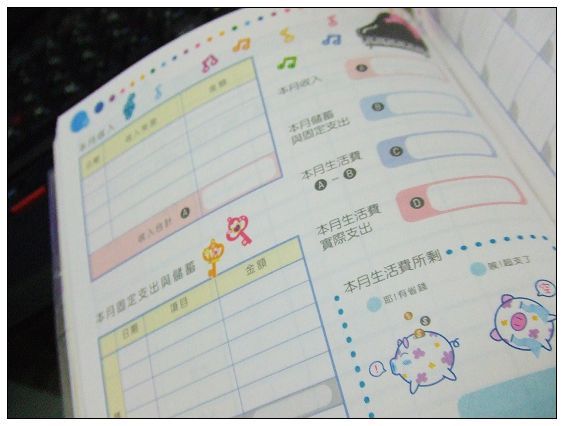 本月收入
日期 收入來源 金額
收入合計 A
本月固定支出與儲蓄
日期 項目 金額
本月收入 A
本月儲蓄
與固定支出 B
本月生活費
A - B C
本月生活費
實際支出 D
本月生活費所剩
耶!有省錢
唉!超支了
$
$
$
!